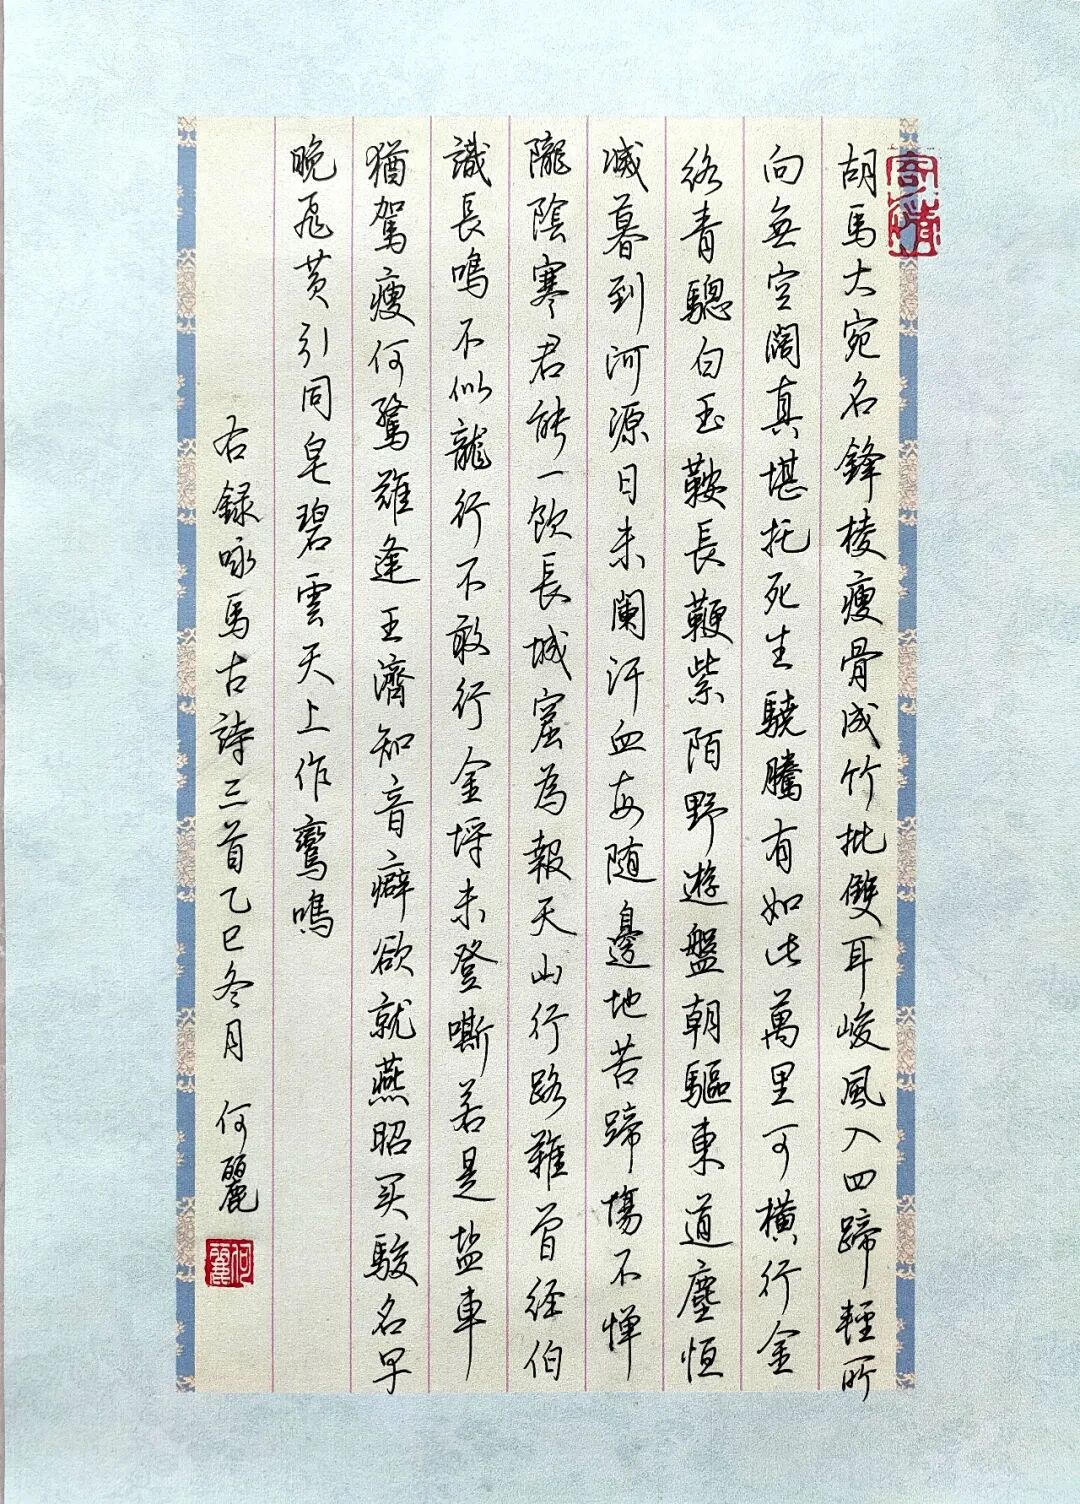 寄情
胡馬大宛名鋒棱瘦骨成竹批雙耳峻風入四蹄輕所
向無空闊真堪托死生驍騰有如此萬里可橫行金
絡青驄白玉鞍長鞭紫陌野遊盤朝驅東道塵恒
滅暮到河源日未闌汗血每随邊地苦蹄傷不憚
隴陰寒君能一飲長城窟為報天山行路難曾經伯
識長鳴不似龍行不敢行金埒未登嘶若是盐車
猶駕瘦何驚難逢王濟知音癖欲就燕昭买駿名早
晚飛黄引同皂碧雲天上作鸞鳴
右録咏馬古詩三首乙巳冬月 何麗
何麗